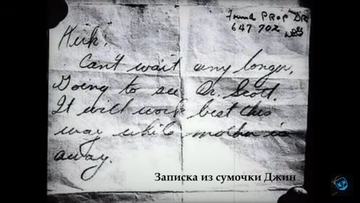 Found PROP DR
647 702
Kirk,
Can't wait any longer,
Going to see Dr. Scott.
It will work best this
way while mother is
away.
Записка из сумочки Джин